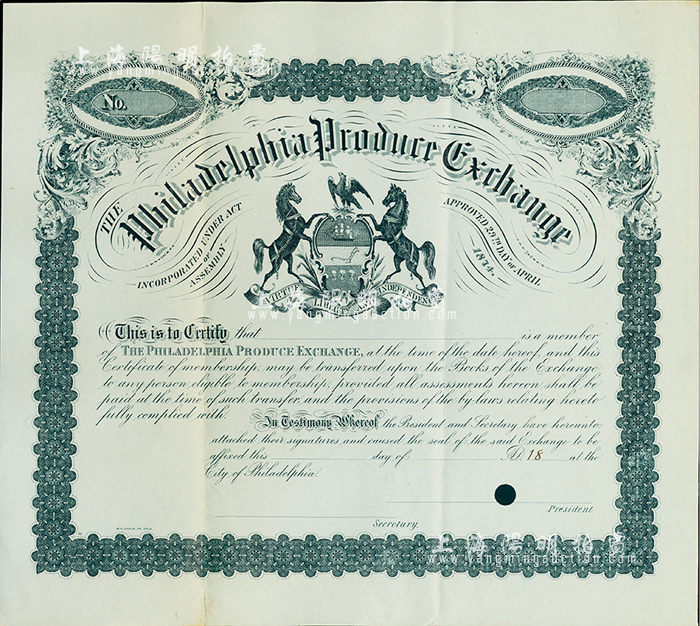 上海陽明拍賣
www.yangmingauction.com
No.
THE
Philadelphia Produce Exchange
INCORPORATED UNDER ACT
OF
ASSEMBLY
APPROVED 29TH DAY OF APRIL
1874.
VIRTUE LIBERTY AND INDEPENDENCE
上海陽明拍賣
www.yangmingauction.com
This is to Certify that is a member
of THE PHILADELPHIA PRODUCE EXCHANGE, at the time of the date hereof, and this
Certificate of membership, may be transferred upon the Books of the Exchange
to any person eligible to membership, provided all assessments hereon shall be
paid at the time of such transfer, and the provisions of the by-laws relating hereto
fully complied with.
In Testimony Whereof, the President and Secretary have hereunto
attached their signatures, and caused the seal of the said Exchange to be
affixed this day of D. 18 at the
City of Philadelphia.
President
Secretary.
上海陽明拍賣
www.yangmingauction.com